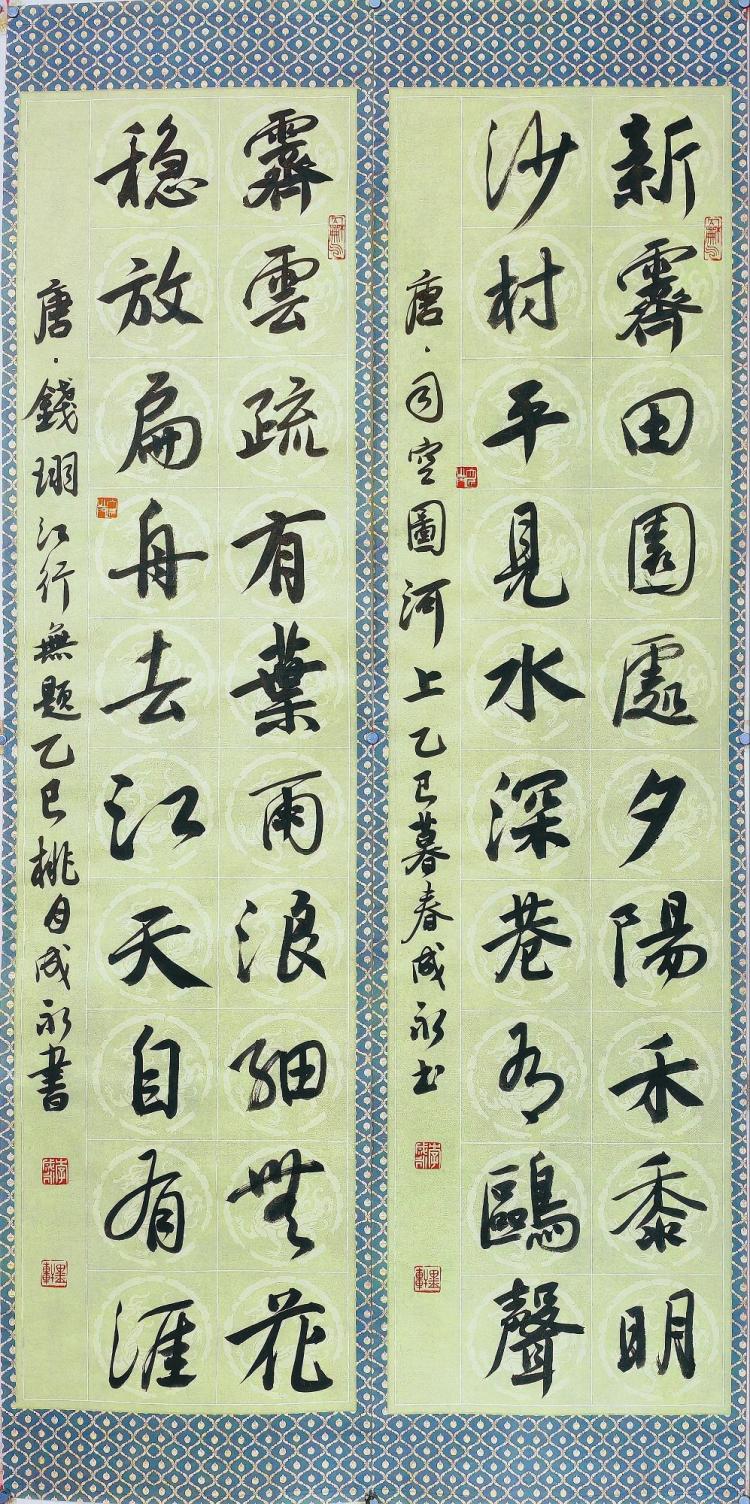 新霽田園處夕陽禾黍明
沙村平見水深巷有鷗聲
唐·司空圖河上乙巳暮春成永书
霽雲疏有葉雨浪細無花
穏放扁舟去江天自有涯
唐·錢珝江行無題乙巳桃月成永書
李成永
李成永